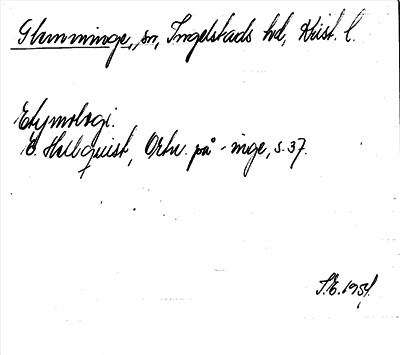 Glimminge, sn, Ingelstads hd, Krist. l.
Etymologi.
E. Hellquist, Ortn. på -inge, s. 37.
S.E. 1951.